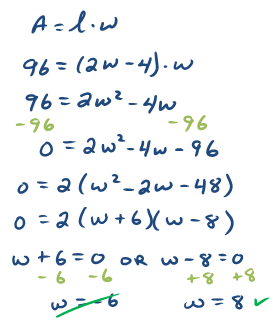 A = l · w
96 = (2w - 4) · w
96 = 2w² - 4w
-96 -96
0 = 2w² - 4w - 96
0 = 2(w² - 2w - 48)
0 = 2(w + 6)(w - 8)
w + 6 = 0 OR w - 8 = 0
-6 -6 +8 +8
w = -6 w = 8 ✓